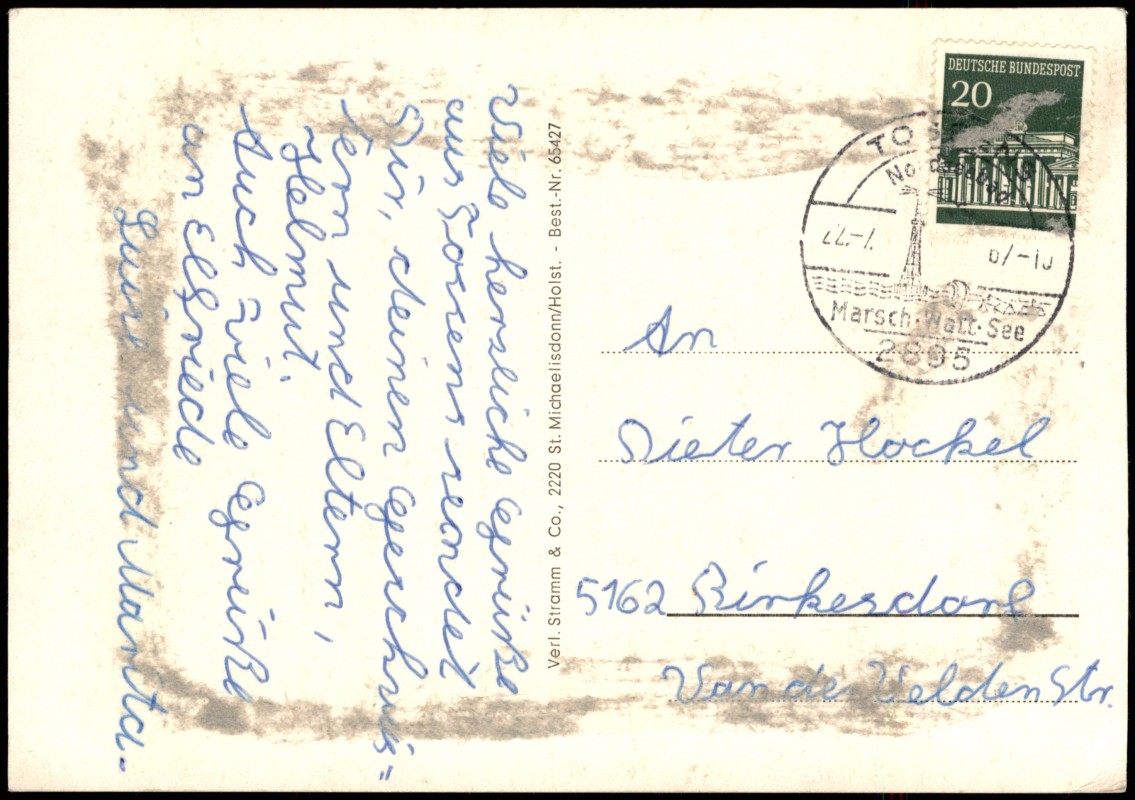 Viele herzliche Grüße
aus Tossens sendet
Dir, deinen Geschwis=
tern und Eltern,
Helmut.
Auch viele Grüße
an Elfriede
und Manita.
Verl. Stramm & Co., 2220 St. Michaelisdonn/Holst. - Best.-Nr. 65427
DEUTSCHE BUNDESPOST
20
TOSSENS
Nordseebad
22.-7.
Marsch·Watt·See
2895
An
Dieter Hockel
5162 Birkesdorf
Van de Velden Str.